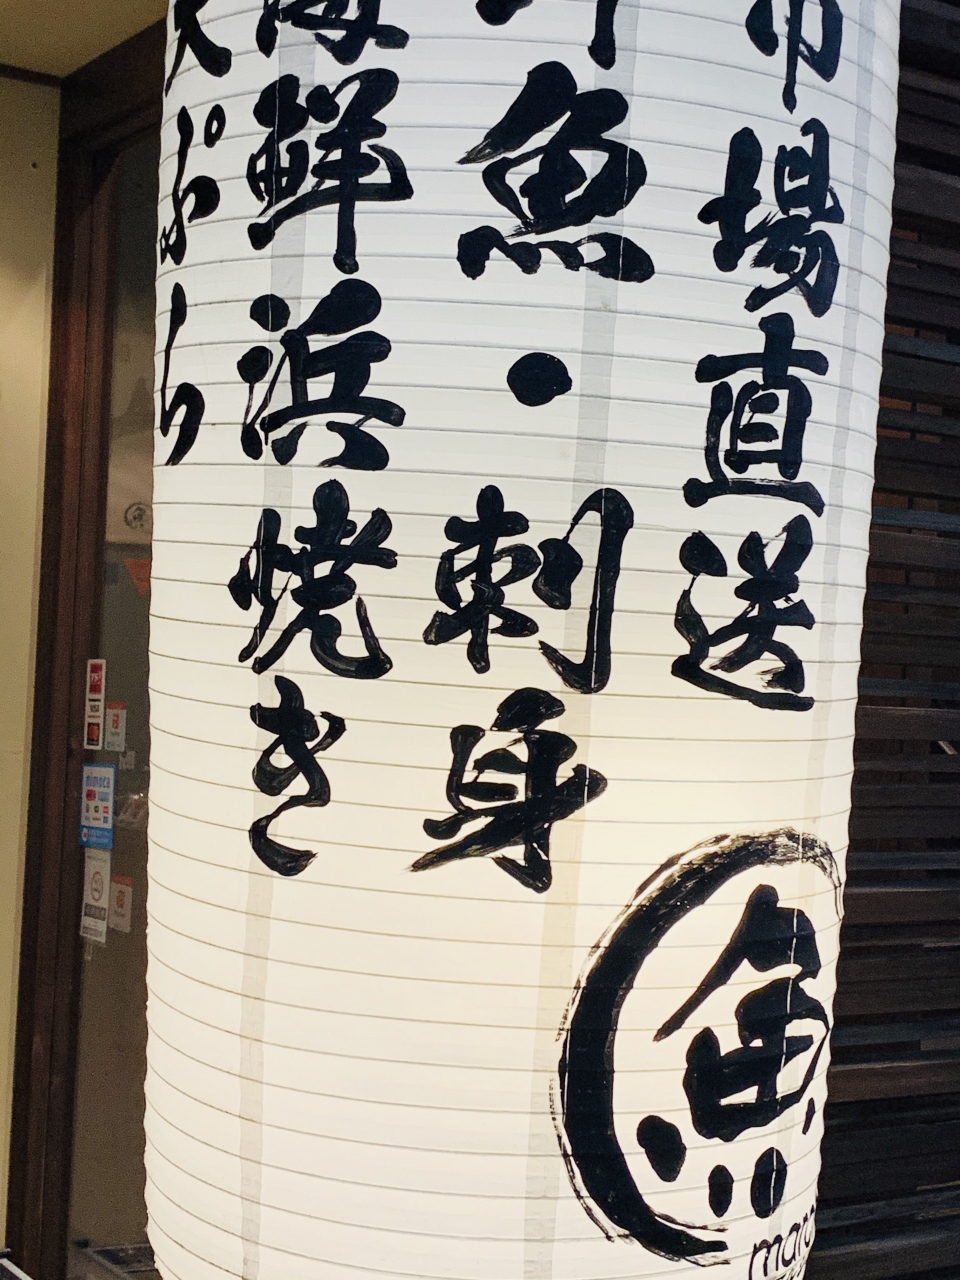 市場直送
魚・刺身
海鮮浜焼き
天ぷら
魚
nimoca